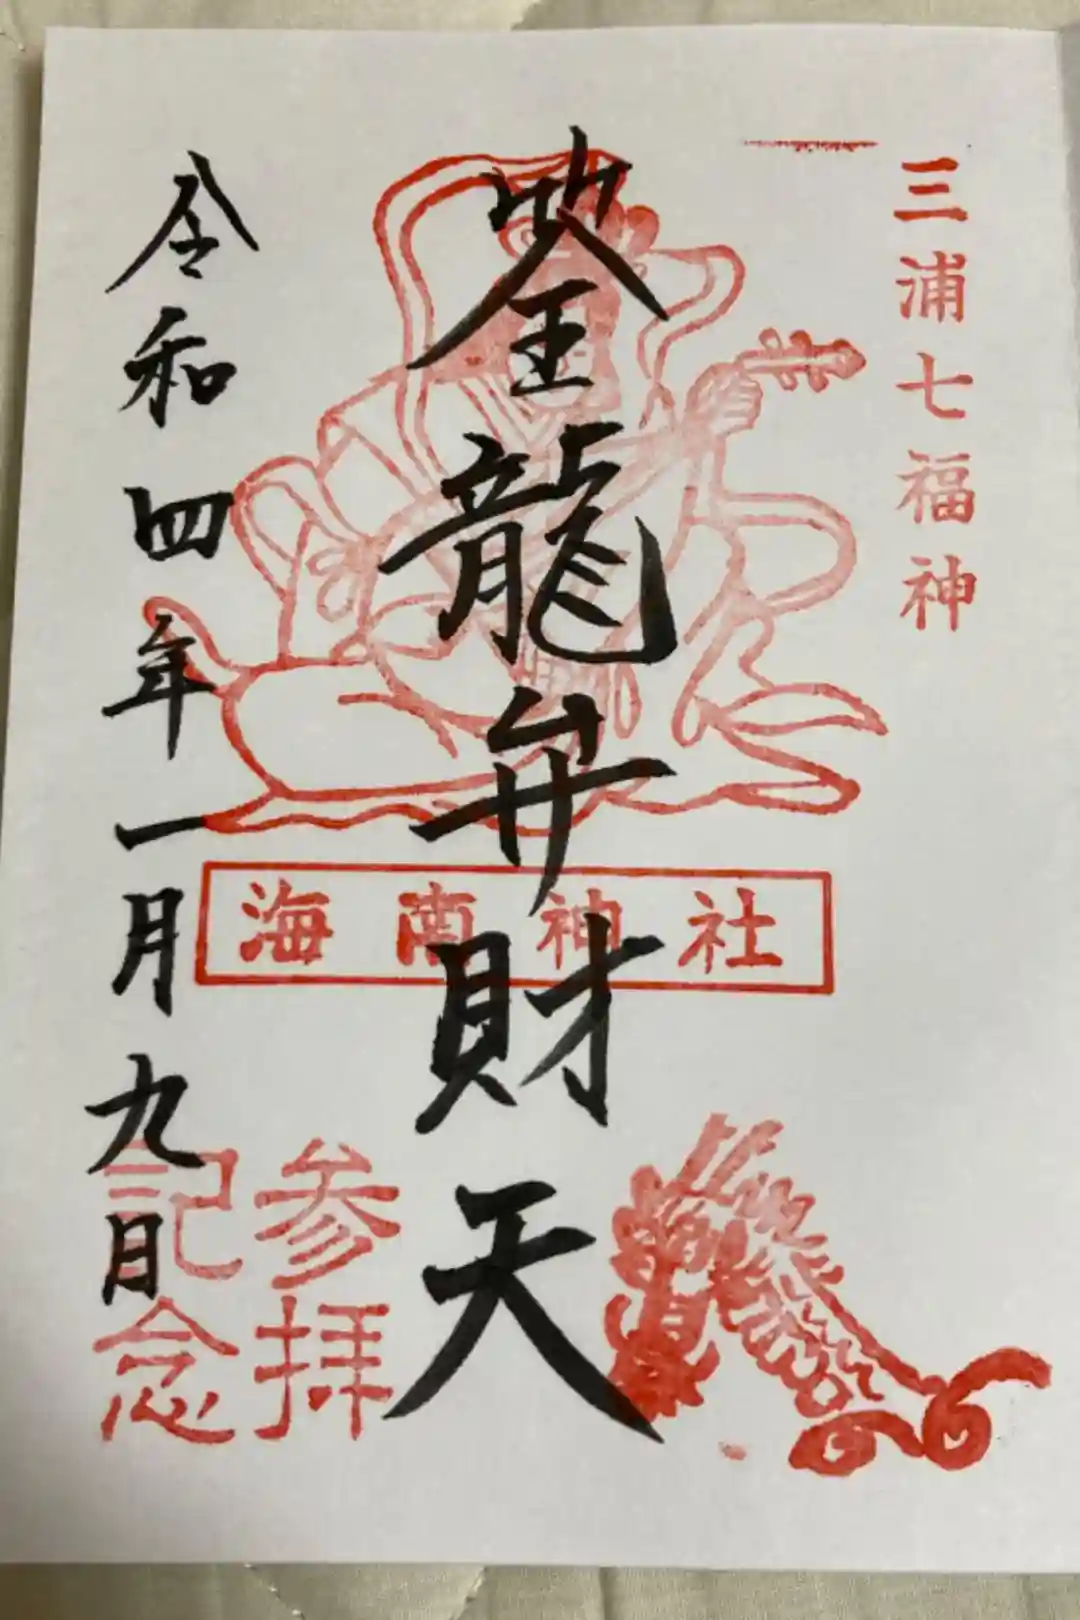 三浦七福神
筌龍弁財天
海南神社
参拝
記念
令和四年一月九日